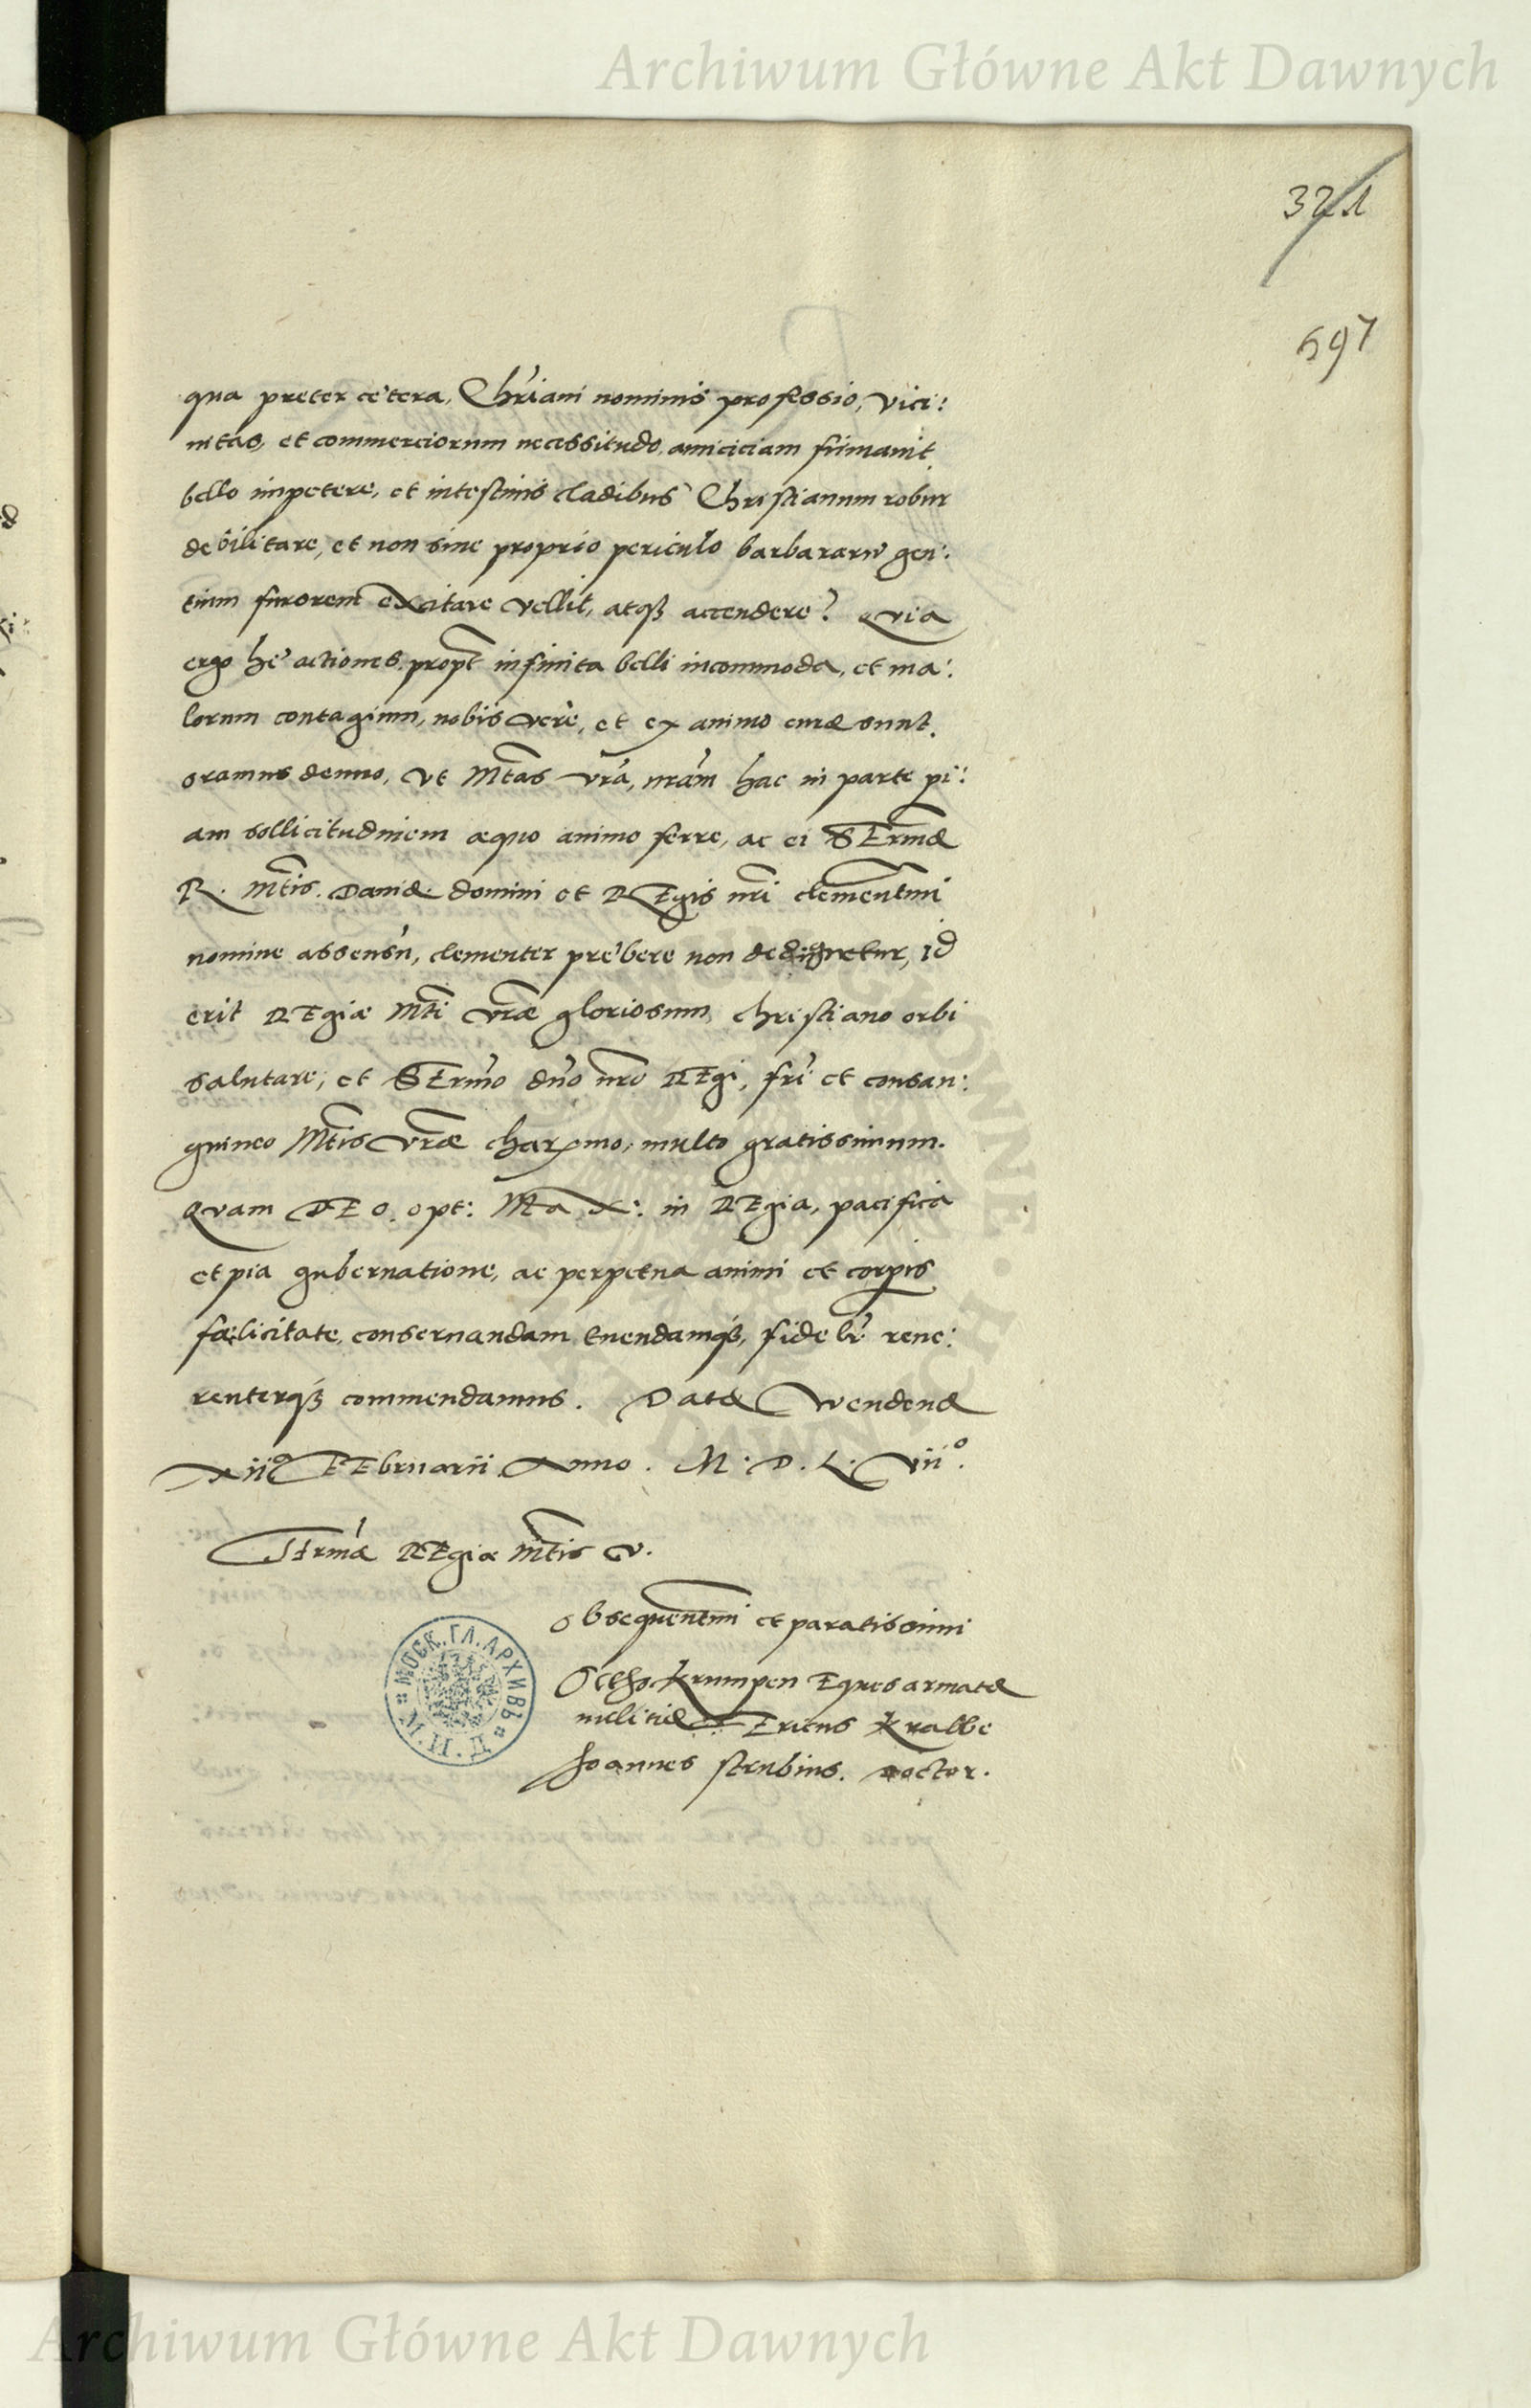 Archiwum Główne Akt Dawnych
321
597
qua preter cetera, Chr'iani nominis professio, vici:
nitas, et commerciorum necessitudo, amiciciam firmauit,
bello impetere, et intestinis cladibus Christianum robur
debilitare, et non sine proprio periculo barbararu' gen:
tium furorem excitare vellit, atqз accendere? Quia
ergo he' actiones propt' infinita belli incommoda, et ma:
lorum contagium, nobis vere, et ex animo curæ sunt,
oramus denuo, vt Mtas vra', nram' hac in parte pi:
am sollicitudinem æquo animo ferre, ac ei SErmæ
R. Mtis. Daniæ domini et REgis nri clementmi
nomine assensu', clementer pre'bere non dedignetur, id
erit REgiæ Mti vræ gloriosum, christiano orbi
salutare, et SErmo dno nro REgi, fri et consan:
guineo Mtis vræ charxmo, multo gratissimum.
Quam DEO. opt: Max: in REgia, pacifica
et pia gubernatione, ac perpetua animi et corpis
fœlicitate, conseruandam tuendamqз, fidelr' reue:
renterqз commendamus. Datæ Wendenæ
Xiio FEbruarii Anno. M. D. L. Viio.
SErmæ REgiæ Mtis V.
Obsequentmi et paratissimi
Ottho Krumpen Eques armatæ
militiæ Ericus Krabbe
Joannes strubius. Doctor.
МОСК. ГЛ. АРХИВЪ
М. И. Д.
GŁÓWNE
AKT DAWNYCH
Archiwum Główne Akt Dawnych